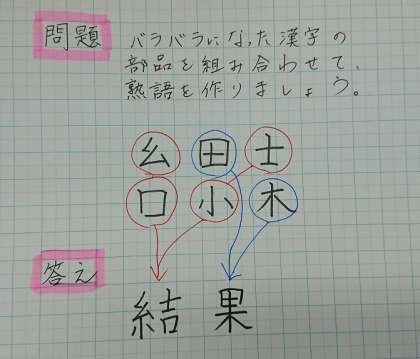 問題
バラバラになった漢字の
部品を組み合わせて、
熟語を作りましょう。
幺 田 士
口 小 木
答え
結果